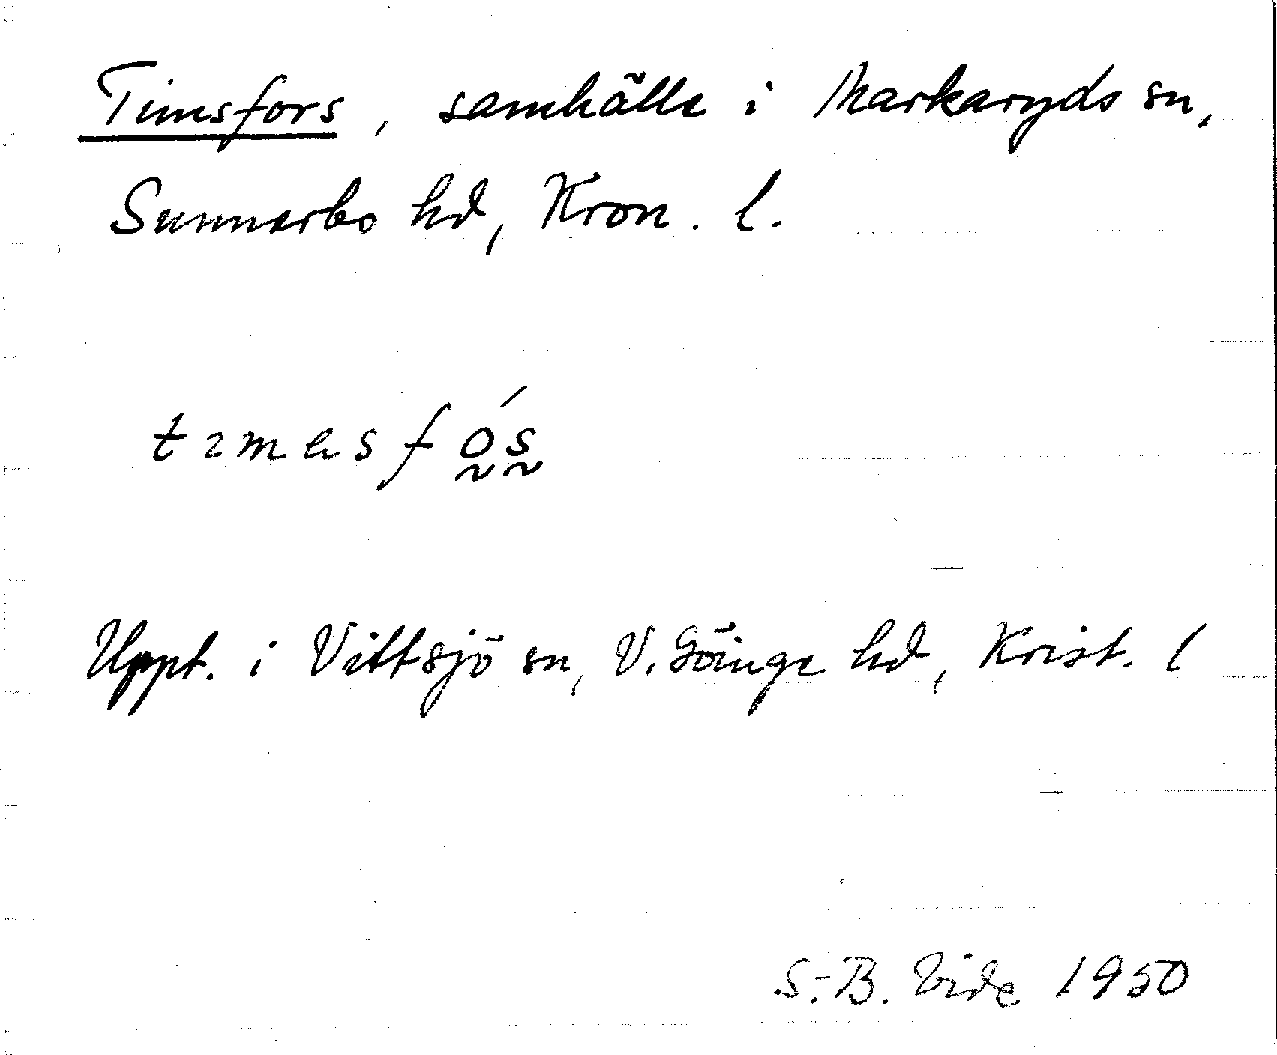 Timsfors, samhälle i Markaryds sn,
Sunnerbo hd, Kron. l.
tımasfó̰s̰
Uppt. i Vittsjö sn, V. Göinge hd, Krist. l
S.-B. Vide 1950